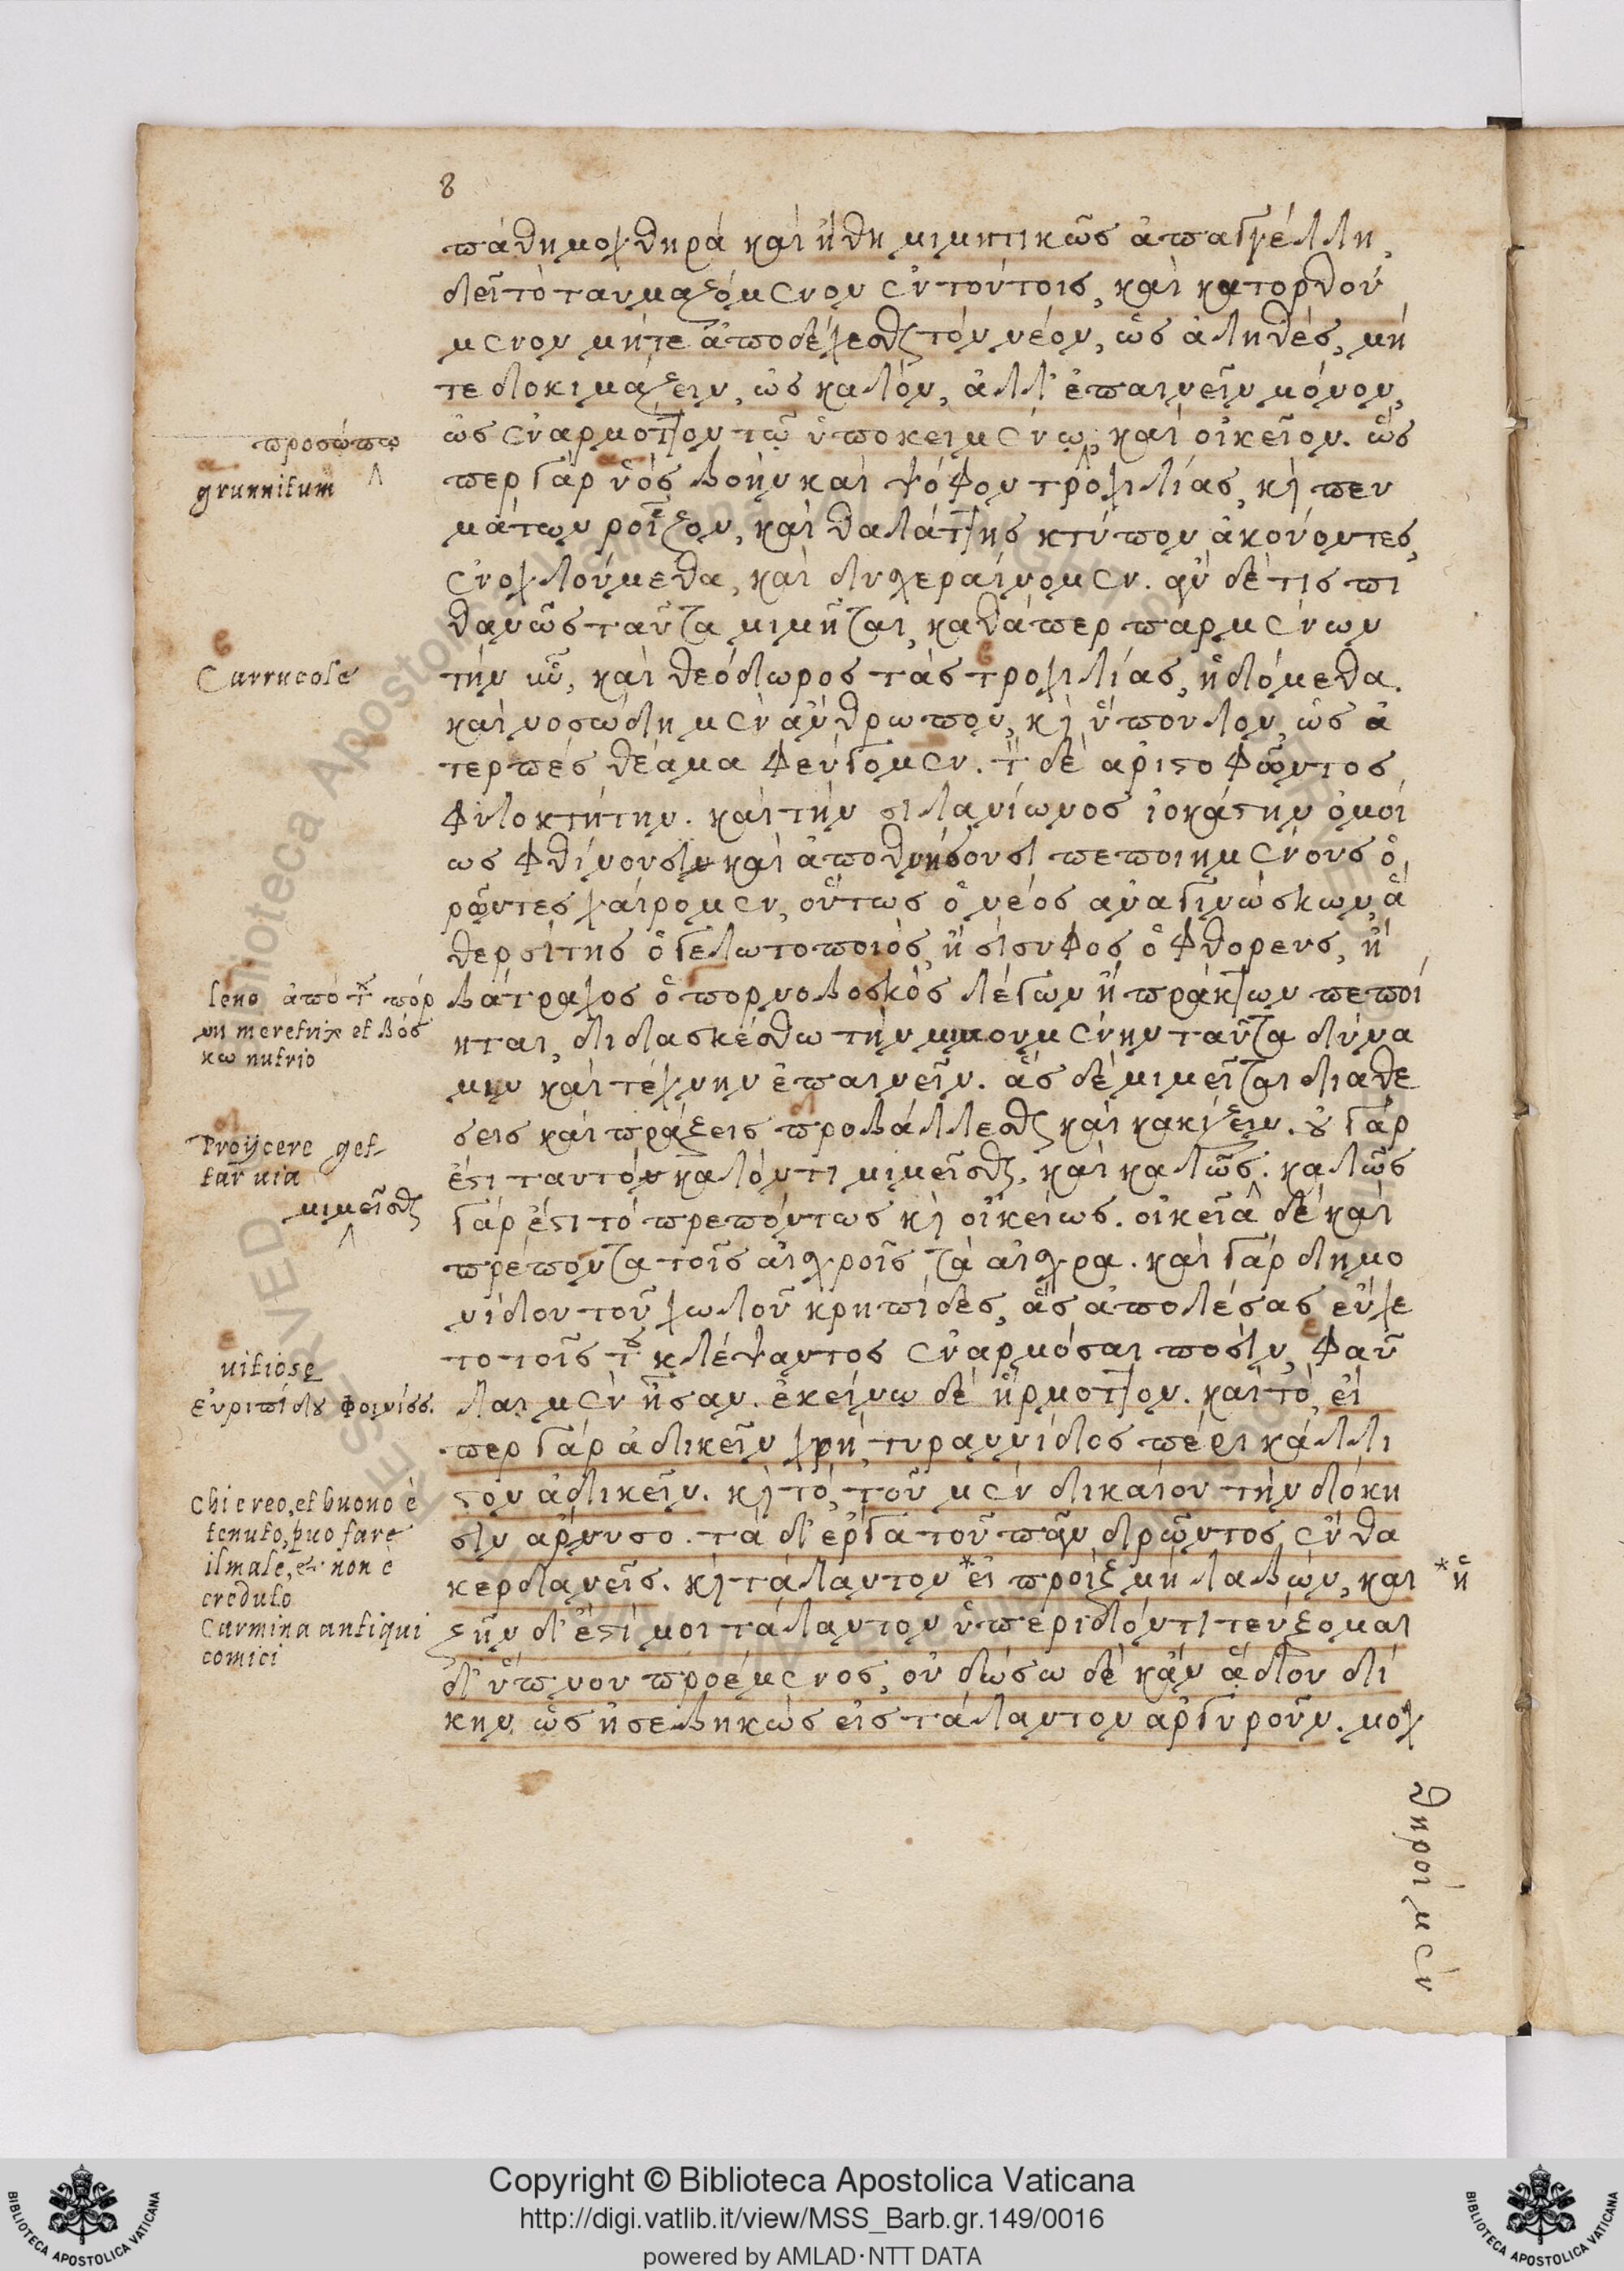 8
πάθη μοχθηρὰ καὶ ἤθη μιμητικῶς ἀπαγγέλλη,
δεῖ τὸ ταυμαζόμενον ἐν τούτοις, καὶ κατορθού
μενον μήτε ἀποδέχεσθαι τὸν νέον, ὡς ἀληθές, μή
τε δοκιμάζειν, ὡς καλόν, ἀλλ' ἐπαινεῖν μόνον,
ὡς ἐναρμόττον τῷ ὑποκειμένῳ, καὶ οἰκεῖον. ὥσ
περ γὰρ ὑὸς βοὴν καὶ ψόφον τροχιλίας, κὶ πευ
μάτων ροῖζον, καὶ θαλάττης κτύπον ἀκούοντες,
ἐνοχλούμεθα, καὶ δυχεραίνομεν. ἂν δέ τις πι
θανῶς ταῦτα μιμῆται, καθάπερ παρμένων
τὴν ὗν, καὶ θεόδωρος τὰς τροχιλίας, ἡδόμεθα.
καὶ νοσώδη μὲν ἄνθρωπον, κὶ ὕπουλον, ὡς ἀ
τερπὲς θέαμα φεύγομεν. τὸν δὲ ἀριστοφῶντος
φιλοκτήτην. καὶ τὴν σιλανίωνος ἰοκάστην ὁμοί
ως φθίνουσιν καὶ ἀποθνήσουσι πεποιημένους ὁ
ρῶντες χαίρομεν, οὕτως ὁ νέος ἀναγινώσκων, ἃ
θερσίτης ὁ γελωτοποιός, ἢ σίσυφος ὁ φθορεὺς, ἢ
βάτραχος ὁ πορνοβοσκὸς λέγων ἢ πράττων πεποί
ηται, διδασκέσθω τὴν μιμουμένην ταῦτα δύνα
μιν καὶ τέχνην ἐπαινεῖν. ἃς δὲ μιμεῖται διαθέ
σεις καὶ πράξεις προβάλλεσθαι καὶ κακίζειν. οὐ γάρ
ἐστι ταυτὸν καλόν τι μιμεῖσθαι, καὶ καλῶς. καλῶς
γάρ ἐστι τὸ πρεπόντως κὶ οἰκείως. οἰκεῖα δὲ καὶ
πρέποντα τοῖς αἰχροῖς τὰ αἰχρα. καὶ γὰρ δημο
νίδου τοῦ χωλοῦ κρηπίδες, ἃς ἀπολέσας εὔχε
το τοῖς τοῦ κλέψαντος ἐναρμόσαι ποσὶν, φαῦ
λαι μὲν ἦσαν. ἐκείνω δὲ ἥρμοττον. καὶ τὸ, εἴ
περ γὰρ ἀδικεῖν χρὴ, τυραννίδος πέρι κάλλι
στον ἀδικεῖν. κὶ τὸ, τοῦ μὲν δικαίου τὴν δόκη
σιν ἄρνυσο. τὰ δ' ἔργα τοῦ πᾶν δρῶντος ἔνθα
κερδανεῖς. κὶ τάλαντον * εἰ προὶξ μὴ λαβών, καὶ
ζῆν δ' ἐστί μοι τάλαντον ὑπεριδόντι τεύξομαι
δ' ὕπνου προέμενος, οὐ δώσω δὲ κἂν ἅδου δί
κην, ὡς ἠσεβηκὼς εἰς τάλαντον ἀργυροῦν. μοχ
θηροὶ μὲν
προσώπῳ
a
grunnitum
b
Currucole
leno ἀπὸ τοῦ πόρ
νη meretrix et βόσ
κω nutrio
Proijcere get
tar uia
μιμεῖσθαι
uitiose
Εὐριπίδου Φοινίσσ.
Chi e reo, et buono è
tenuto, puo fare
il male, et non è
creduto
Carmina antiqui
comici
* ἢ
Copyright © Biblioteca Apostolica Vaticana
http://digi.vatlib.it/view/MSS_Barb.gr.149/0016
powered by AMLAD·NTT DATA
BIBLIOTECA APOSTOLICA VATICANA
BIBLIOTECA APOSTOLICA VATICANA